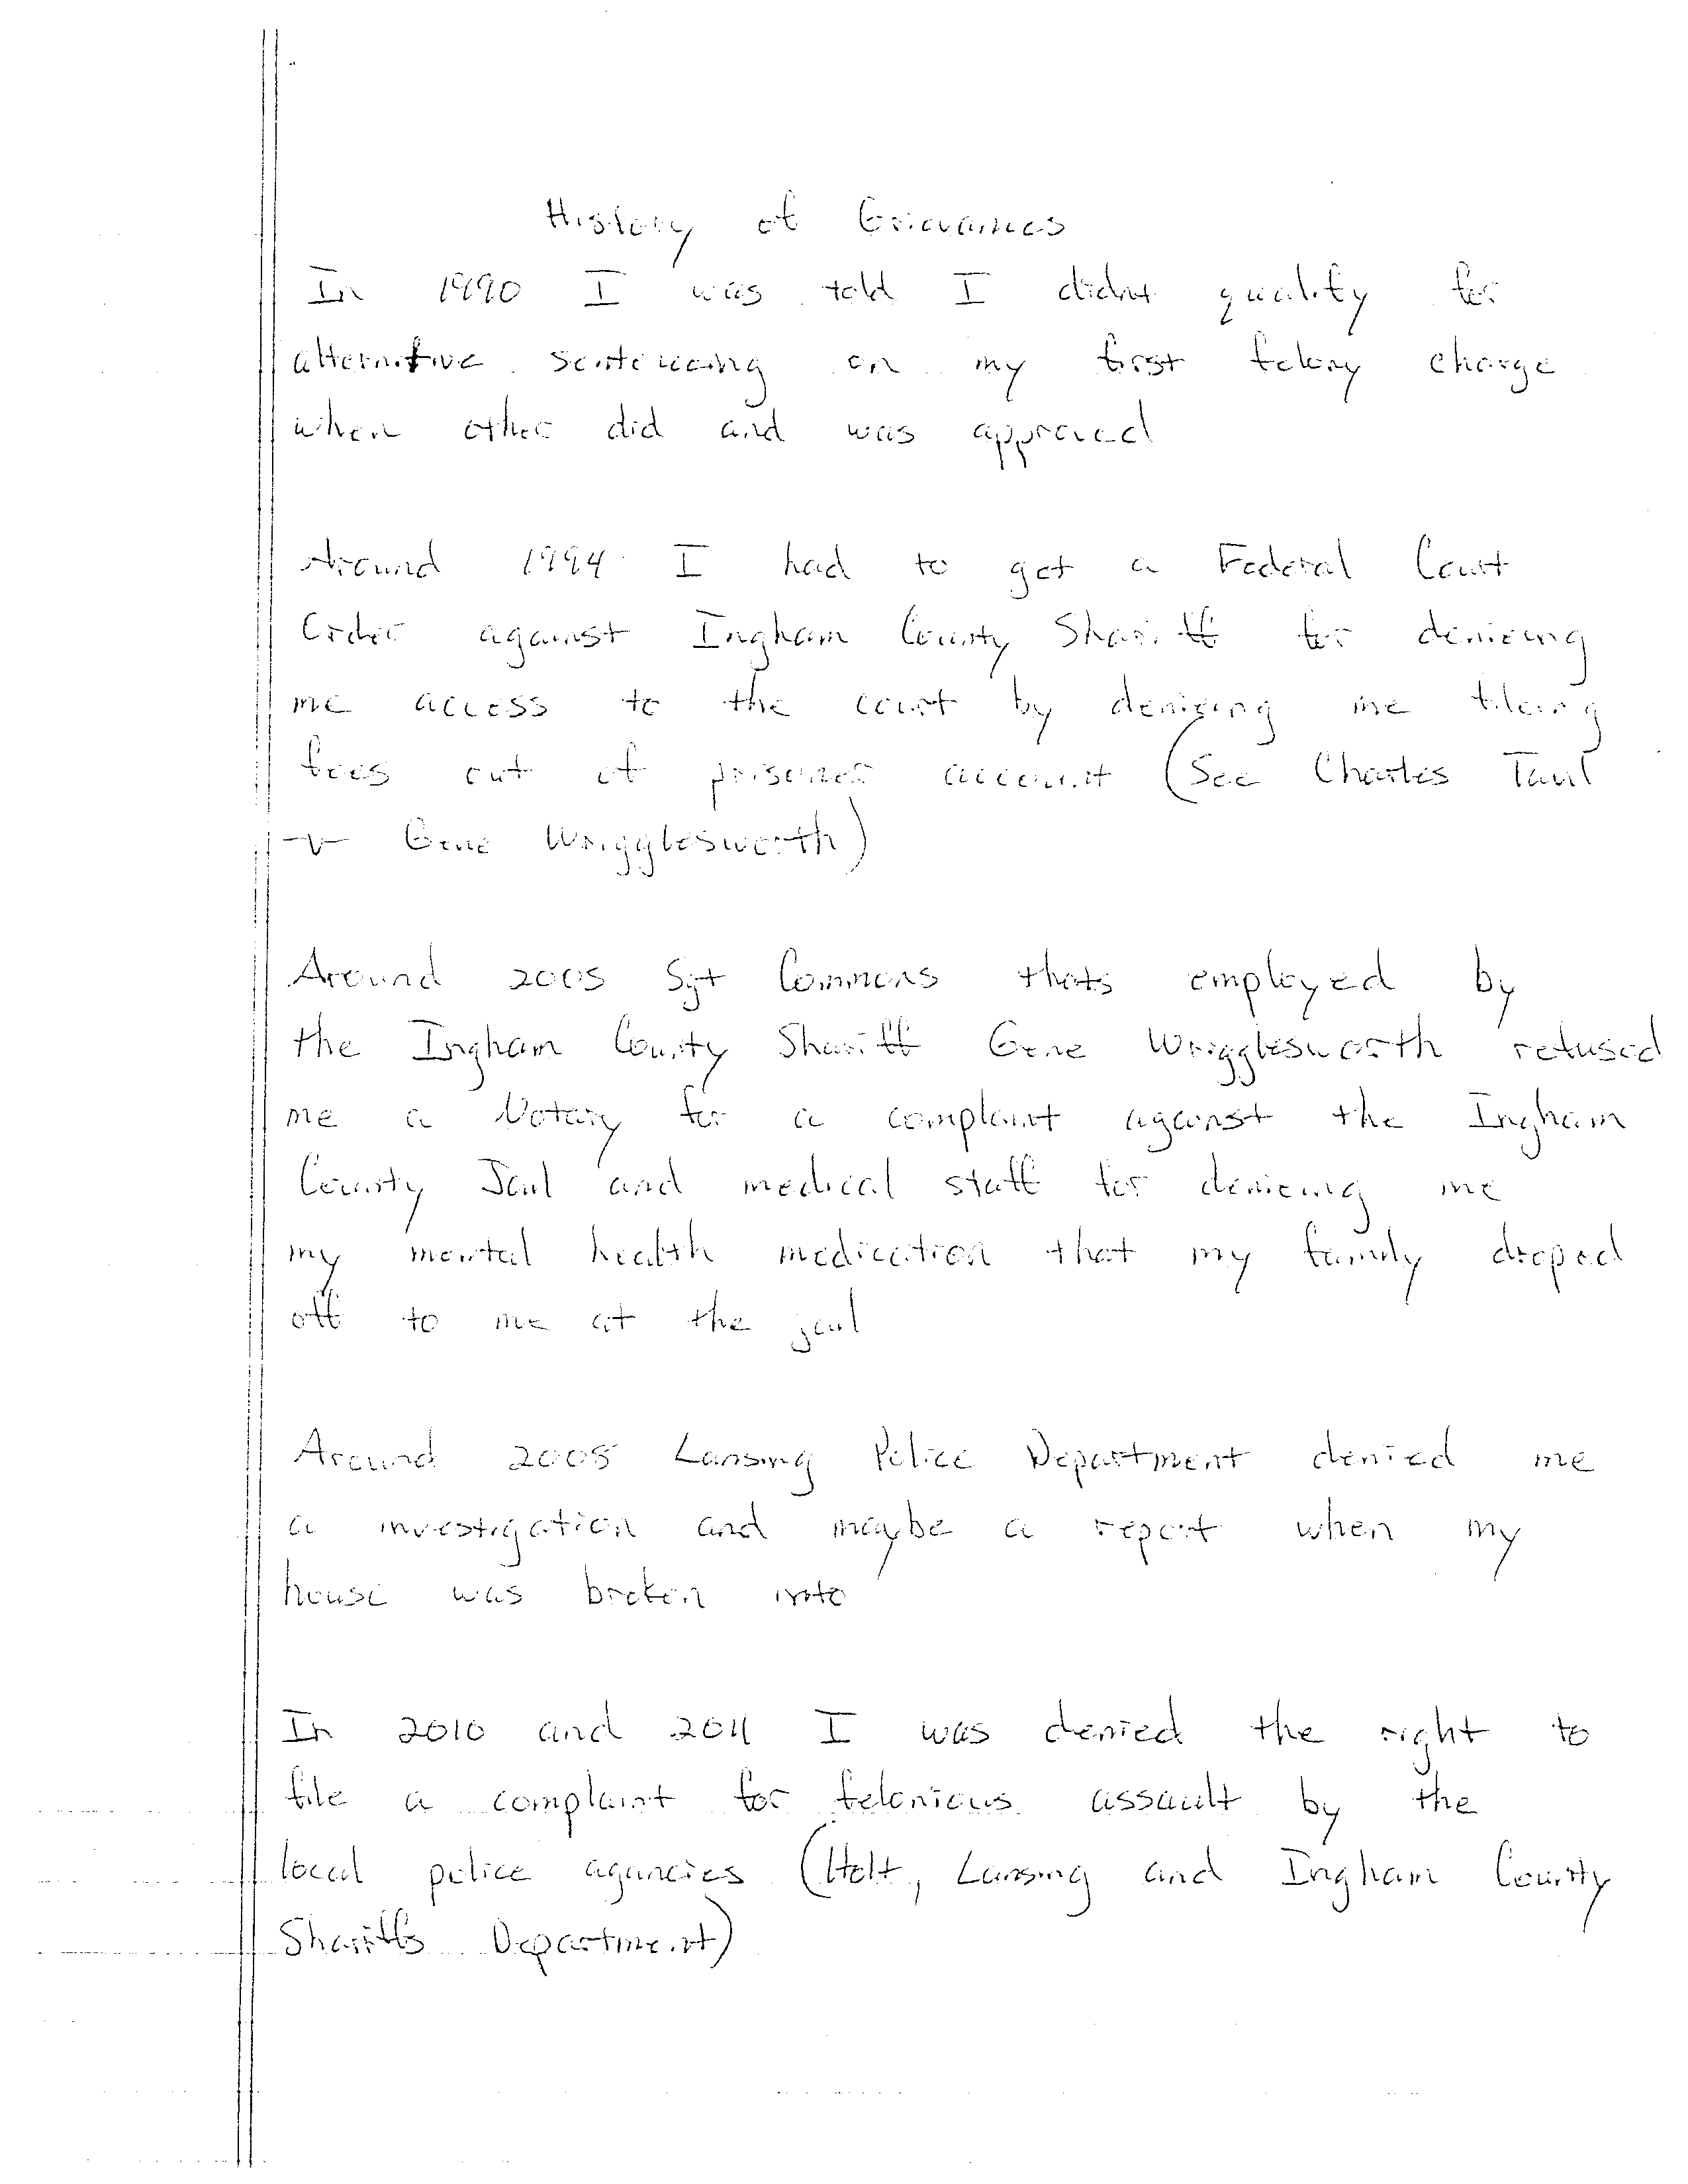 History of Grievances
In 1990 I was told I didnt qualify for
alternitive sentencing on my first felony charge
when other did and was approved
Around 1994 I had to get a Federal Court
Order against Ingham County Shariff for denieing
me access to the court by denieing me fileing
fees out of prisoner account (See Charles Taul
-v- Gene Wrigglesworth)
Around 2005 Sgt Commons thats employed by
the Ingham County Shariff Gene Wrigglesworth refused
me a Notary for a complaint against the Ingham
County Jail and medical staff for denieing me
my mental health medication that my family droped
off to me at the jail
Around 2008 Lansing Police Department denied me
a investigation and maybe a report when my
house was broken into
In 2010 and 2011 I was denied the right to
file a complaint for felonious assault by the
local police agancies (Holt, Lansing and Ingham County
Shariffs Department)